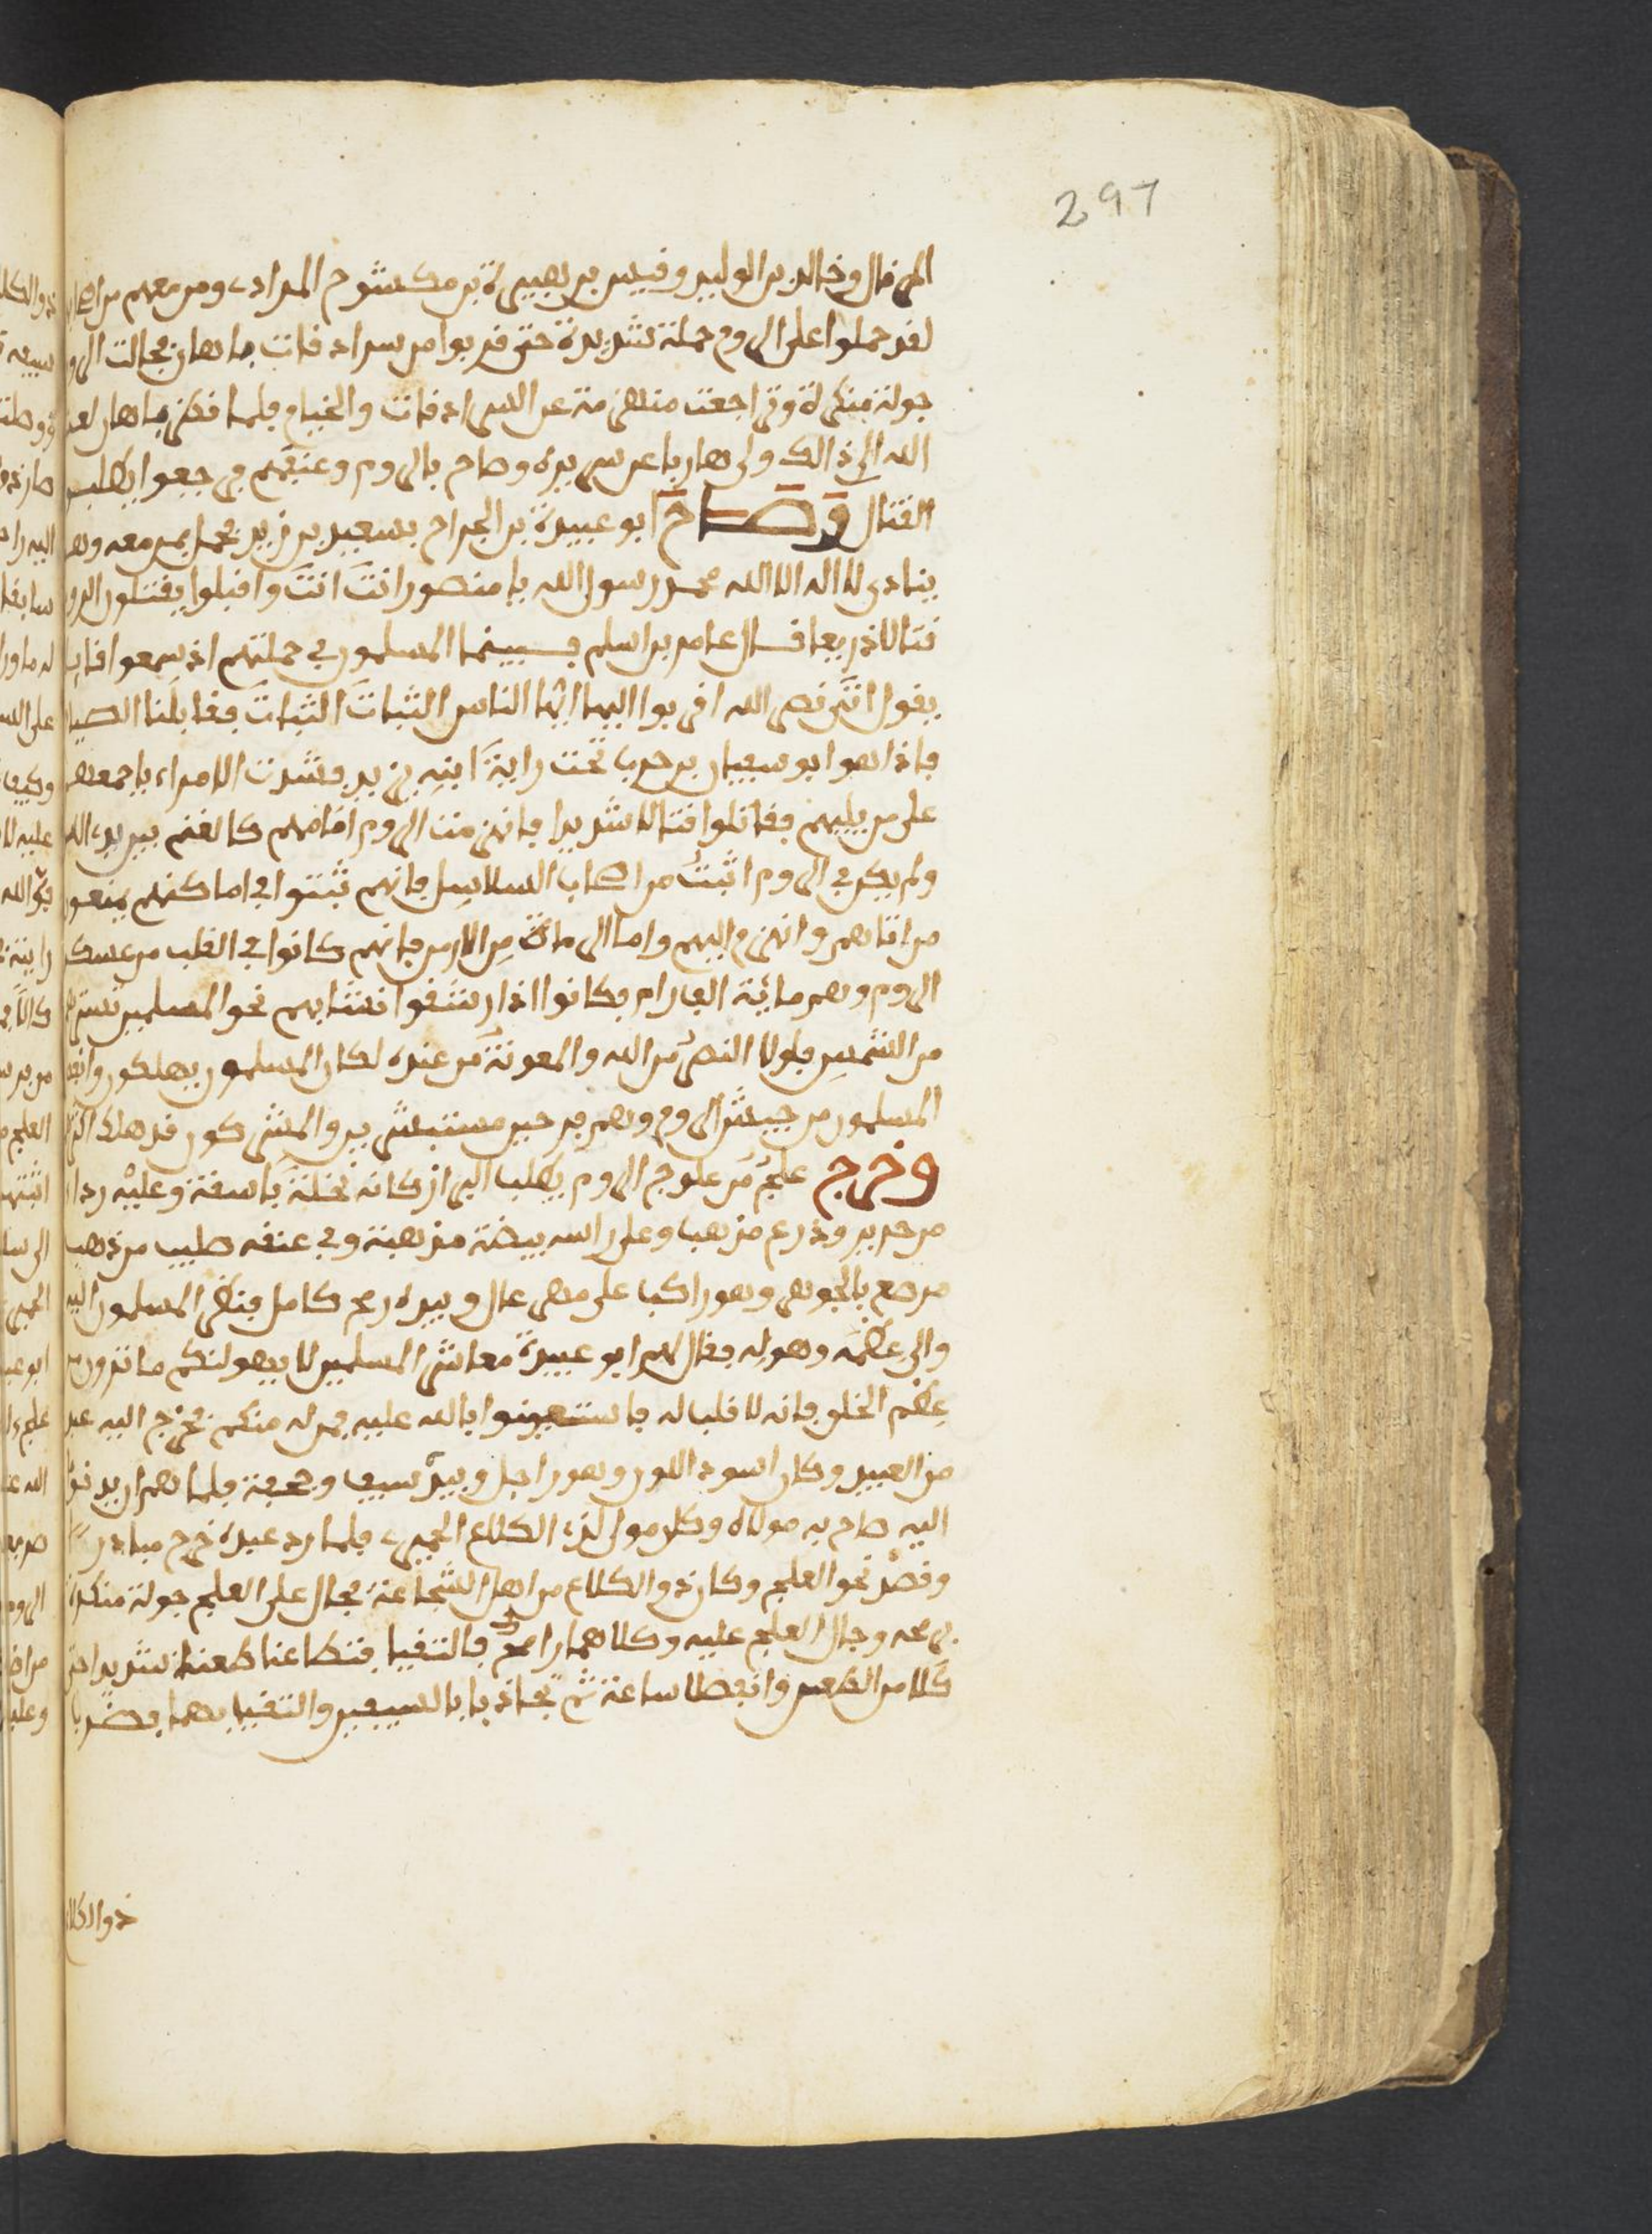 297
المرقال وخالد بن الوليد وقيس بن هبيرة بن مكشوح المرادي ومن معهم من اصحاب
لقد حملوا على الروم حملة شديدة حتى قربوا من سرادقات ماهان فجالت الروم
جولة منكرة وتراجعت منهزمة عن السرادقات والخيام فلما نظر ماهان لعنه
الله الى ذالك ولى هاربا عن سريره وصاح بالروم وعنفهم فرجعوا يطلبون
القتال وصاح ابو عبيدة بن الجراح بسعيد بن زيد فحمل بمن معه وهو
ينادي لا اله الا الله محمد رسول الله يا منصور انت انت واقبلوا يقتلون الروم
قتالا ذريعا قال عامر بن اسلم فبينما المسلمون في حملتهم اذ سمعوا قايلا
يقول انت نصر الله اقربوا اليها ايها الناس الثبات الثبات فقابلنا الصياح
فاذا هو ابو سفيان بن حرب تحت راية ابنه يزيد فشدت الامراء باجمعهم
على من يليهم فقاتلوا قتالا شديدا فانهزمت الروم امامهم كالغنم بين يدي الله
ولم يكن في الروم اثبت من اصحاب السلاسل فانهم ثبتوا في اماكنهم يمنعون
من اتاهم وانهزم اليهم واما الرماة من الارمن فانهم كانوا في القلب من عسكر
الروم وهم مائة الف رام فكانوا اذا رشقوا نشابهم نحو المسلمين تستر
من الشمس فلولا النصر من الله والمعونة من عنده لكان المسلمون يهلكون
المسلمون من جيش الروم وهم فرحين مستبشرين والمشركون قد هلك
وخرج علج من علوج الروم يطلب البراز كانه نخلة باسقة وعليه رداء
من حرير ودرع مذهب وعلى راسه بيضة مذهبة وفي عنقه صليب من ذهب
مرصع بالجوهر وهو راكب على مهر عال وبيده رمح كامل فنظر المسلمون اليه
والى عظمه وهوله فقال لهم ابو عبيدة معاشر المسلمين لا يهولنكم ما ترون من
عظم الخلق فانه لا قلب له فاستعينوا بالله عليه فمن له منكم فخرج اليه عبد
من العبيد وكان اسود اللون وهو راجل وبيده سيف وحجفة فلما هم ان يدنو
اليه صاح به مولاه وكان مولى لذي الكلاع الحميري فلما رد عبده خرج مبادرا
وقصد نحو العلج وكان ذو الكلاع من اهل الشجاعة فجال على العلج جولة منكرة
برمحه وجال العلج عليه وكلاهما رامح فالتقيا فتطاعنا طعنا شديدا حتى
كلا من الطعن وانفصلا ساعة ثم تجاذبا بالسيفين والتقيا بهما فضربا
ذو الكلاع